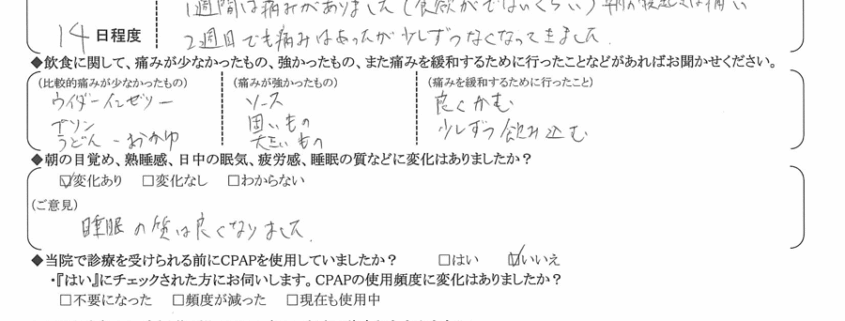 1週間は痛みがありました(食欲がでないくらい) 朝の寝起きは痛い
14 日程度
2週目でも痛みはあったが少しずつなくなってきました.
◆飲食に関して、痛みが少なかったもの、強かったもの、また痛みを緩和するために行ったことなどがあればお聞かせください。
(比較的痛みが少なかったもの) (痛みが強かったもの) (痛みを緩和するために行ったこと)
ウイダーインゼリー ソース 良くかむ
プリン 固いもの 少しずつ飲み込む
うどん - おかゆ 大きいもの
◆朝の目覚め、熟睡感、日中の眠気、疲労感、睡眠の質などに変化はありましたか?
☑変化あり □変化なし □わからない
(ご意見)
睡眠の質は良くなりました.
◆当院で診療を受けられる前にCPAPを使用していましたか? □はい ☑いいえ
・『はい』にチェックされた方にお伺いします。CPAPの使用頻度に変化はありましたか?
□不要になった □頻度が減った □現在も使用中